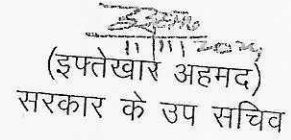 (इफ्तेखार अहमद)
सरकार के उप सचिव